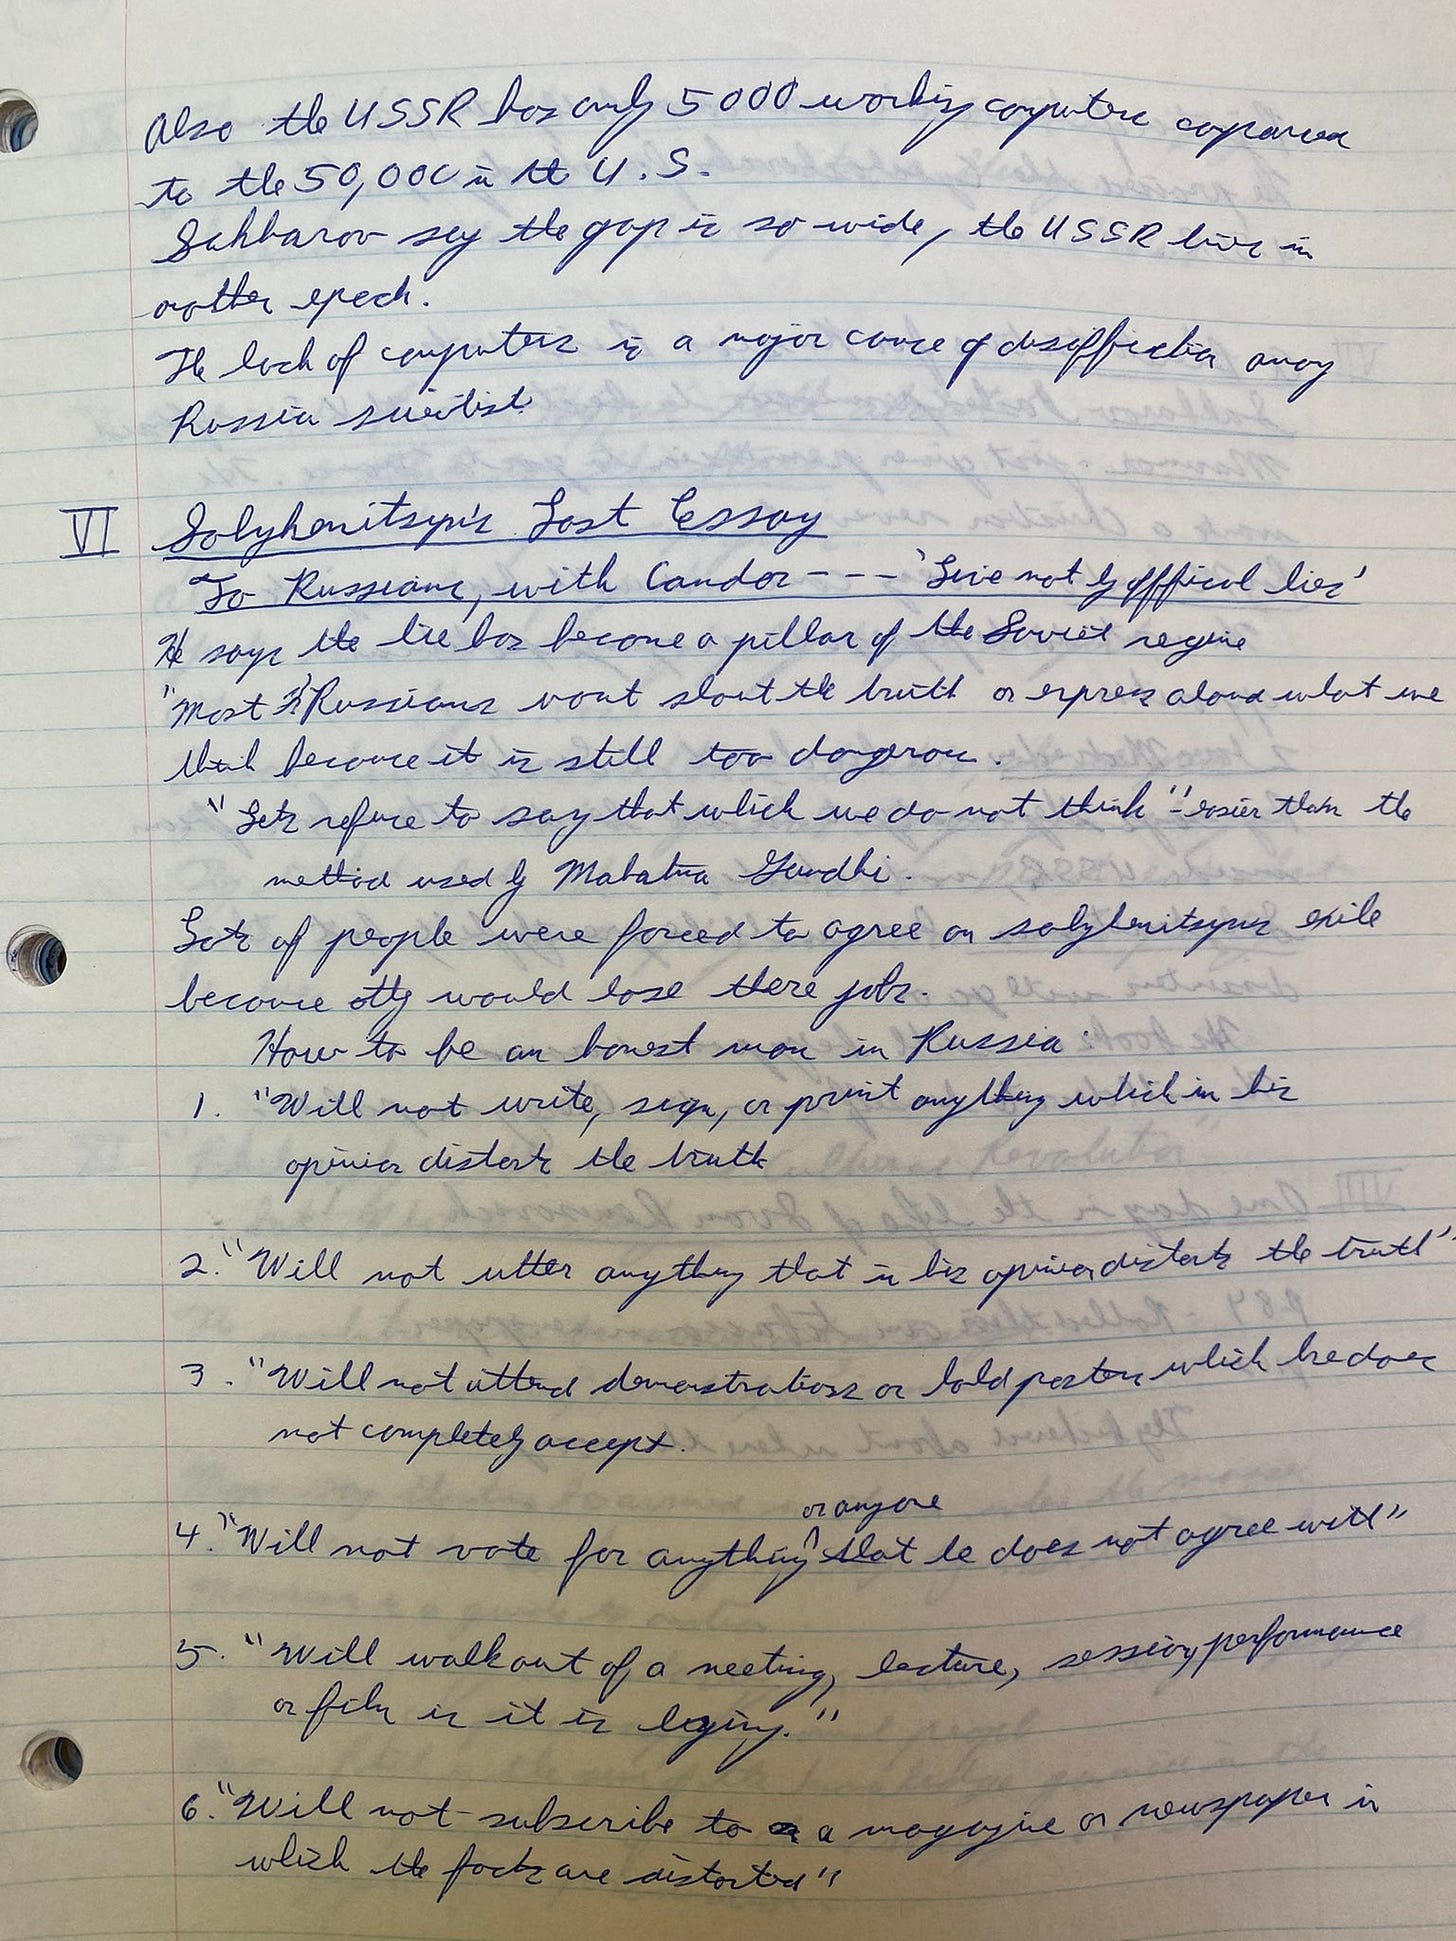 Also the USSR has only 5000 working computers compared
to the 50,000 in the U.S.
Sahharov say the gap is so wide, the USSR live in
another epoch.
The lack of computers is a major cause of disaffection among
Russia scientist
VI Solzhenitsyn's Last Essay
To Russians, with Candor --- 'Live not by official lies'
He says the lie has become a pillar of the Soviet regime
"Most Russians wont shout the truth or express aloud what we
think because it is still too dangerous.
"Lets refuse to say that which we do not think" - easier than the
method used by Mahatma Gandhi.
Lots of people were forced to agree on solzhenitsyns exile
because they would lose there jobs.
How to be an honest man in Russia:
1. "Will not write, sign, or print anything which in his
opinion distorts the truth
2. "Will not utter anything that in his opinion distorts the truth"
3. "Will not attend demonstrations or hold posters which he does
not completely accept.
or anyone
4. "Will not vote for anything that he does not agree with"
5. "Will walk out of a meeting, lecture, session, performance
or film is it is lying."
6. "Will not subscribe to a magazine or newspaper in
which the facts are distorted"